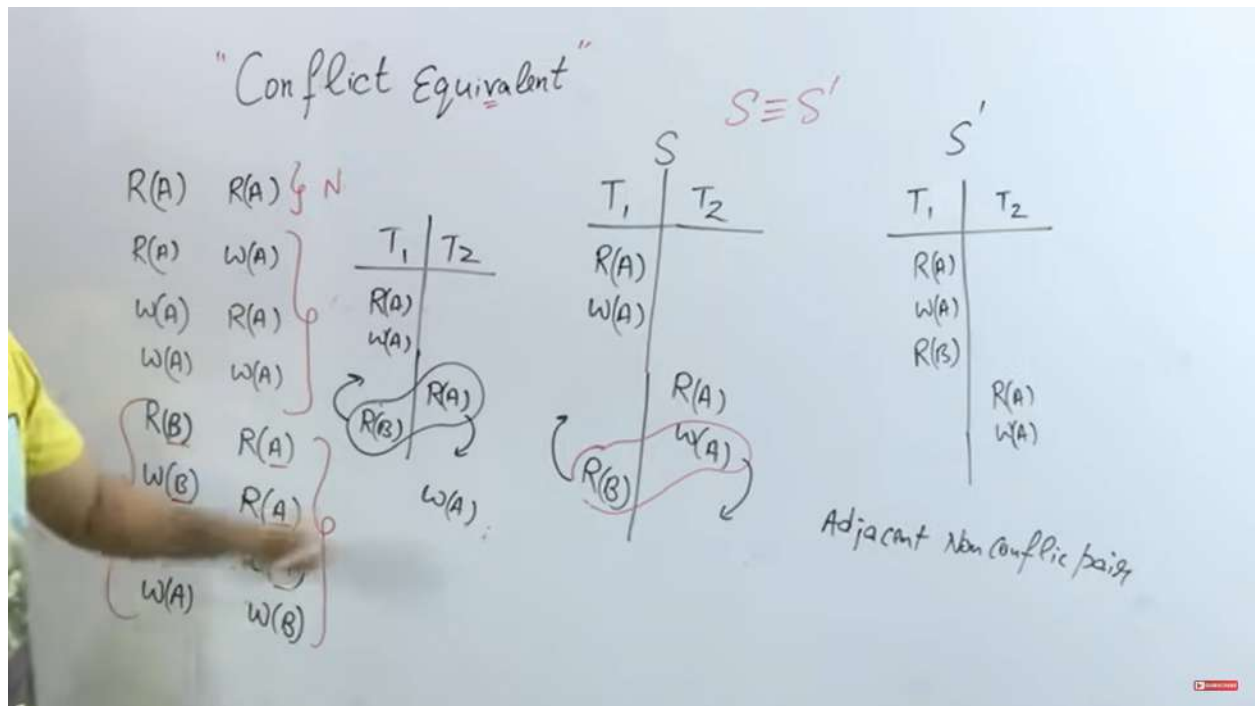 "Conflict Equivalent"
S ≡ S'
R(A) R(A) } N
R(A) W(A)
W(A) R(A)
W(A) W(A)
R(B) R(A)
W(B) R(A)
W(A) W(B)
T1 T2
R(A)
W(A)
R(A)
R(B)
W(A)
S
T1 T2
R(A)
W(A)
R(A)
W(A)
R(B)
S'
T1 T2
R(A)
W(A)
R(B)
R(A)
W(A)
Adjacent Non Conflic pair
SUBSCRIBE